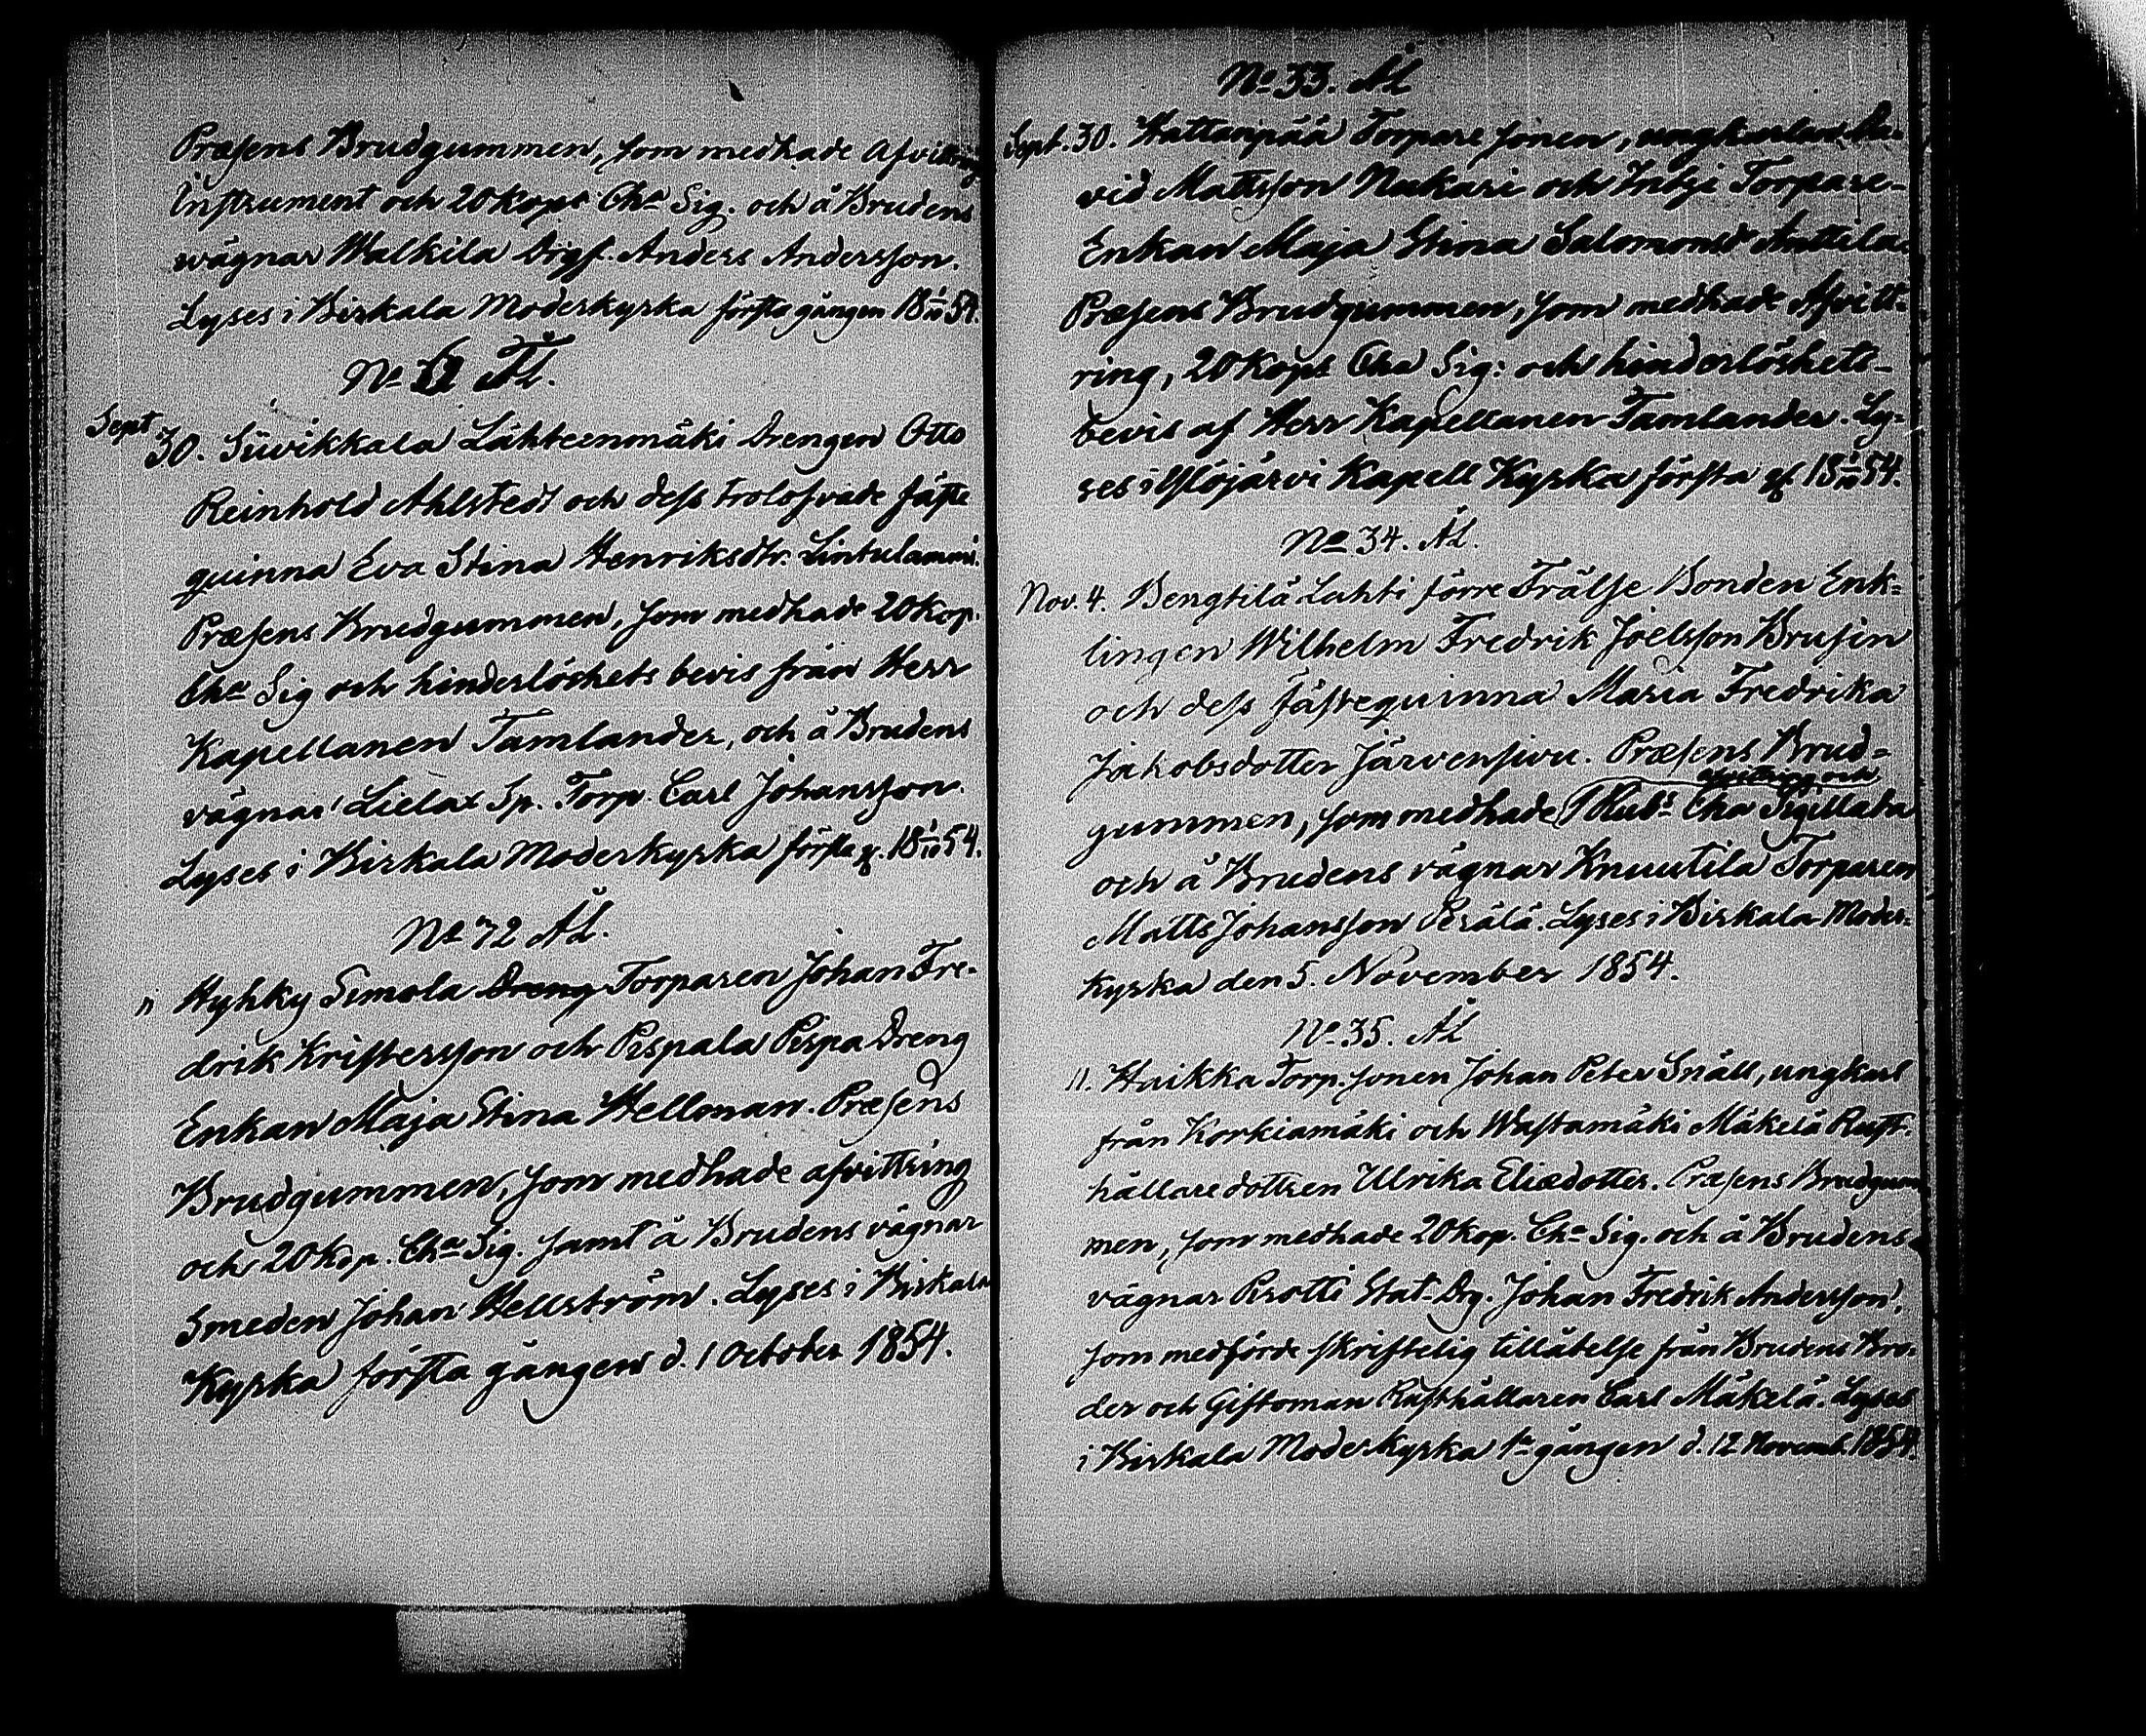 Præsens Brudgummen, som medhade Afvittring
Instrument och 20 kops Cha Sig. och å Brudens
wägnar Walkila Drgf. Anders Andersson.
Lyses i Birkala Moderkyrka första gången 18 1/10 54.
No ÅL.
Sept 30. Siivikkala Lähteenmäki Drengen Otto
Reinhold Ahlstedt och dess trolofvade fäste
quinna Eva Stina Henriksdtr. Lintulammi.
Præsens Brudgummen, som medhade 20 kop.
Cha Sig och hinderlöshets bevis från Herr
Kapellanen Tamlander, och å Brudens
vägnar Lielax Sp. Torp. Carl Johansson.
Lyses i Birkala Moderkyrka första g. 18 1/10 54.
No 72 ÅL.
" Hyhky Simola Dreng Torparen Johan Fre-
drik Kristersson och Pispala Pispa Dreng
Enkan Maja Stina Hellman. Præsens
Brudgummen, som medhade afvittring
och 20 kop. Cha Sig. samt å Brudens vägnar
Smeden Johan Hellström. Lyses i Birkala
Kyrka första gången d. 1 October 1854.
No 33. ÅL
Sept. 30. Hattanpää Torpare sonen, ungkarlen Da-
vid Mattsson Nukari och Torpare-
Enkan Maja Stina Salomonsdr Anttila.
Præsens Brudgummen, som medhade Afvitt-
ring, 20 kops Cha Sig: och hinderlöshets-
bevis af Herr Kapellanen Tamlander. Ly-
ses i Ylöjärvi Kapell Kyrka första g 18 1/10 54.
No 34. ÅL.
Nov. 4. Bengtilä Lahti förre Frälse Bonden Enk-
lingen Wilhelm Fredrik Joelsson Brusin
och dess fästequinna Maria Fredrika
Jakobsdotter Järvensivu. Præsens Brud-
afvittring och
gummen, som medhade 1 Rubs Cha Sigillata
och å Brudens vägnar Knuutila Torparen
Matts Johansson Perälä. Lyses i Birkala Moder-
kyrka den 5. November 1854.
No 35. ÅL
11. Haikka Torp. sonen Johan Peter Snäll, ungkarl
från Korkiamäki och Wastamäki Mäkelä Rust-
hållare dottren Ulrika Eliædotter. Præsens Brudgum
men, som medhade 20 kop. Cha Sig. och å Brudens
vägnar Pirotti Stat. Drg. Johan Fredrik Andersson,
som medförde skriftelig tillåtelse från Brudens Bro-
der och Giftoman Rusthållaren Carl Mäkelä. Lyses
i Birkala Moderkyrka 1a gången d. 12 Novemb. 1854.